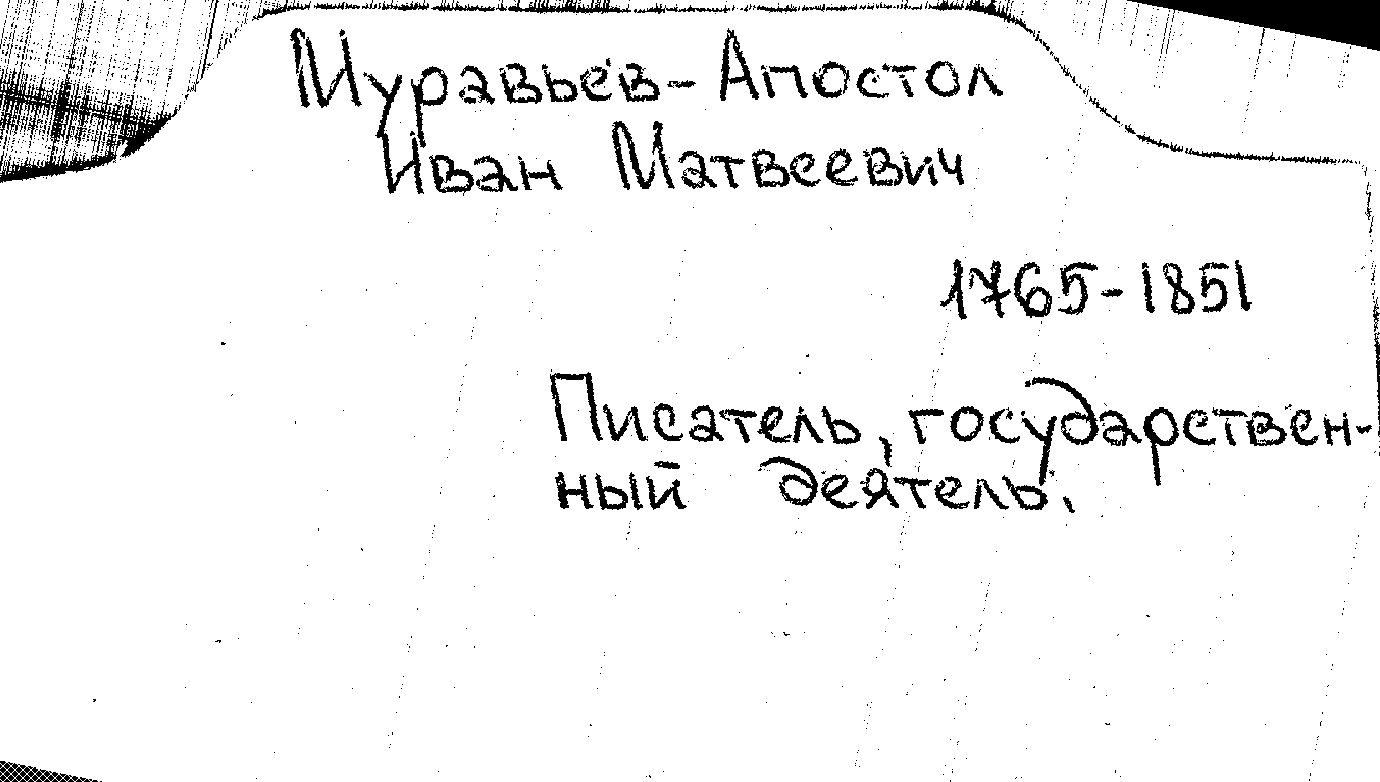 Муравьёв-Апостол
Иван Матвеевич
1765-1851
Писатель, государствен-
ный деятель.